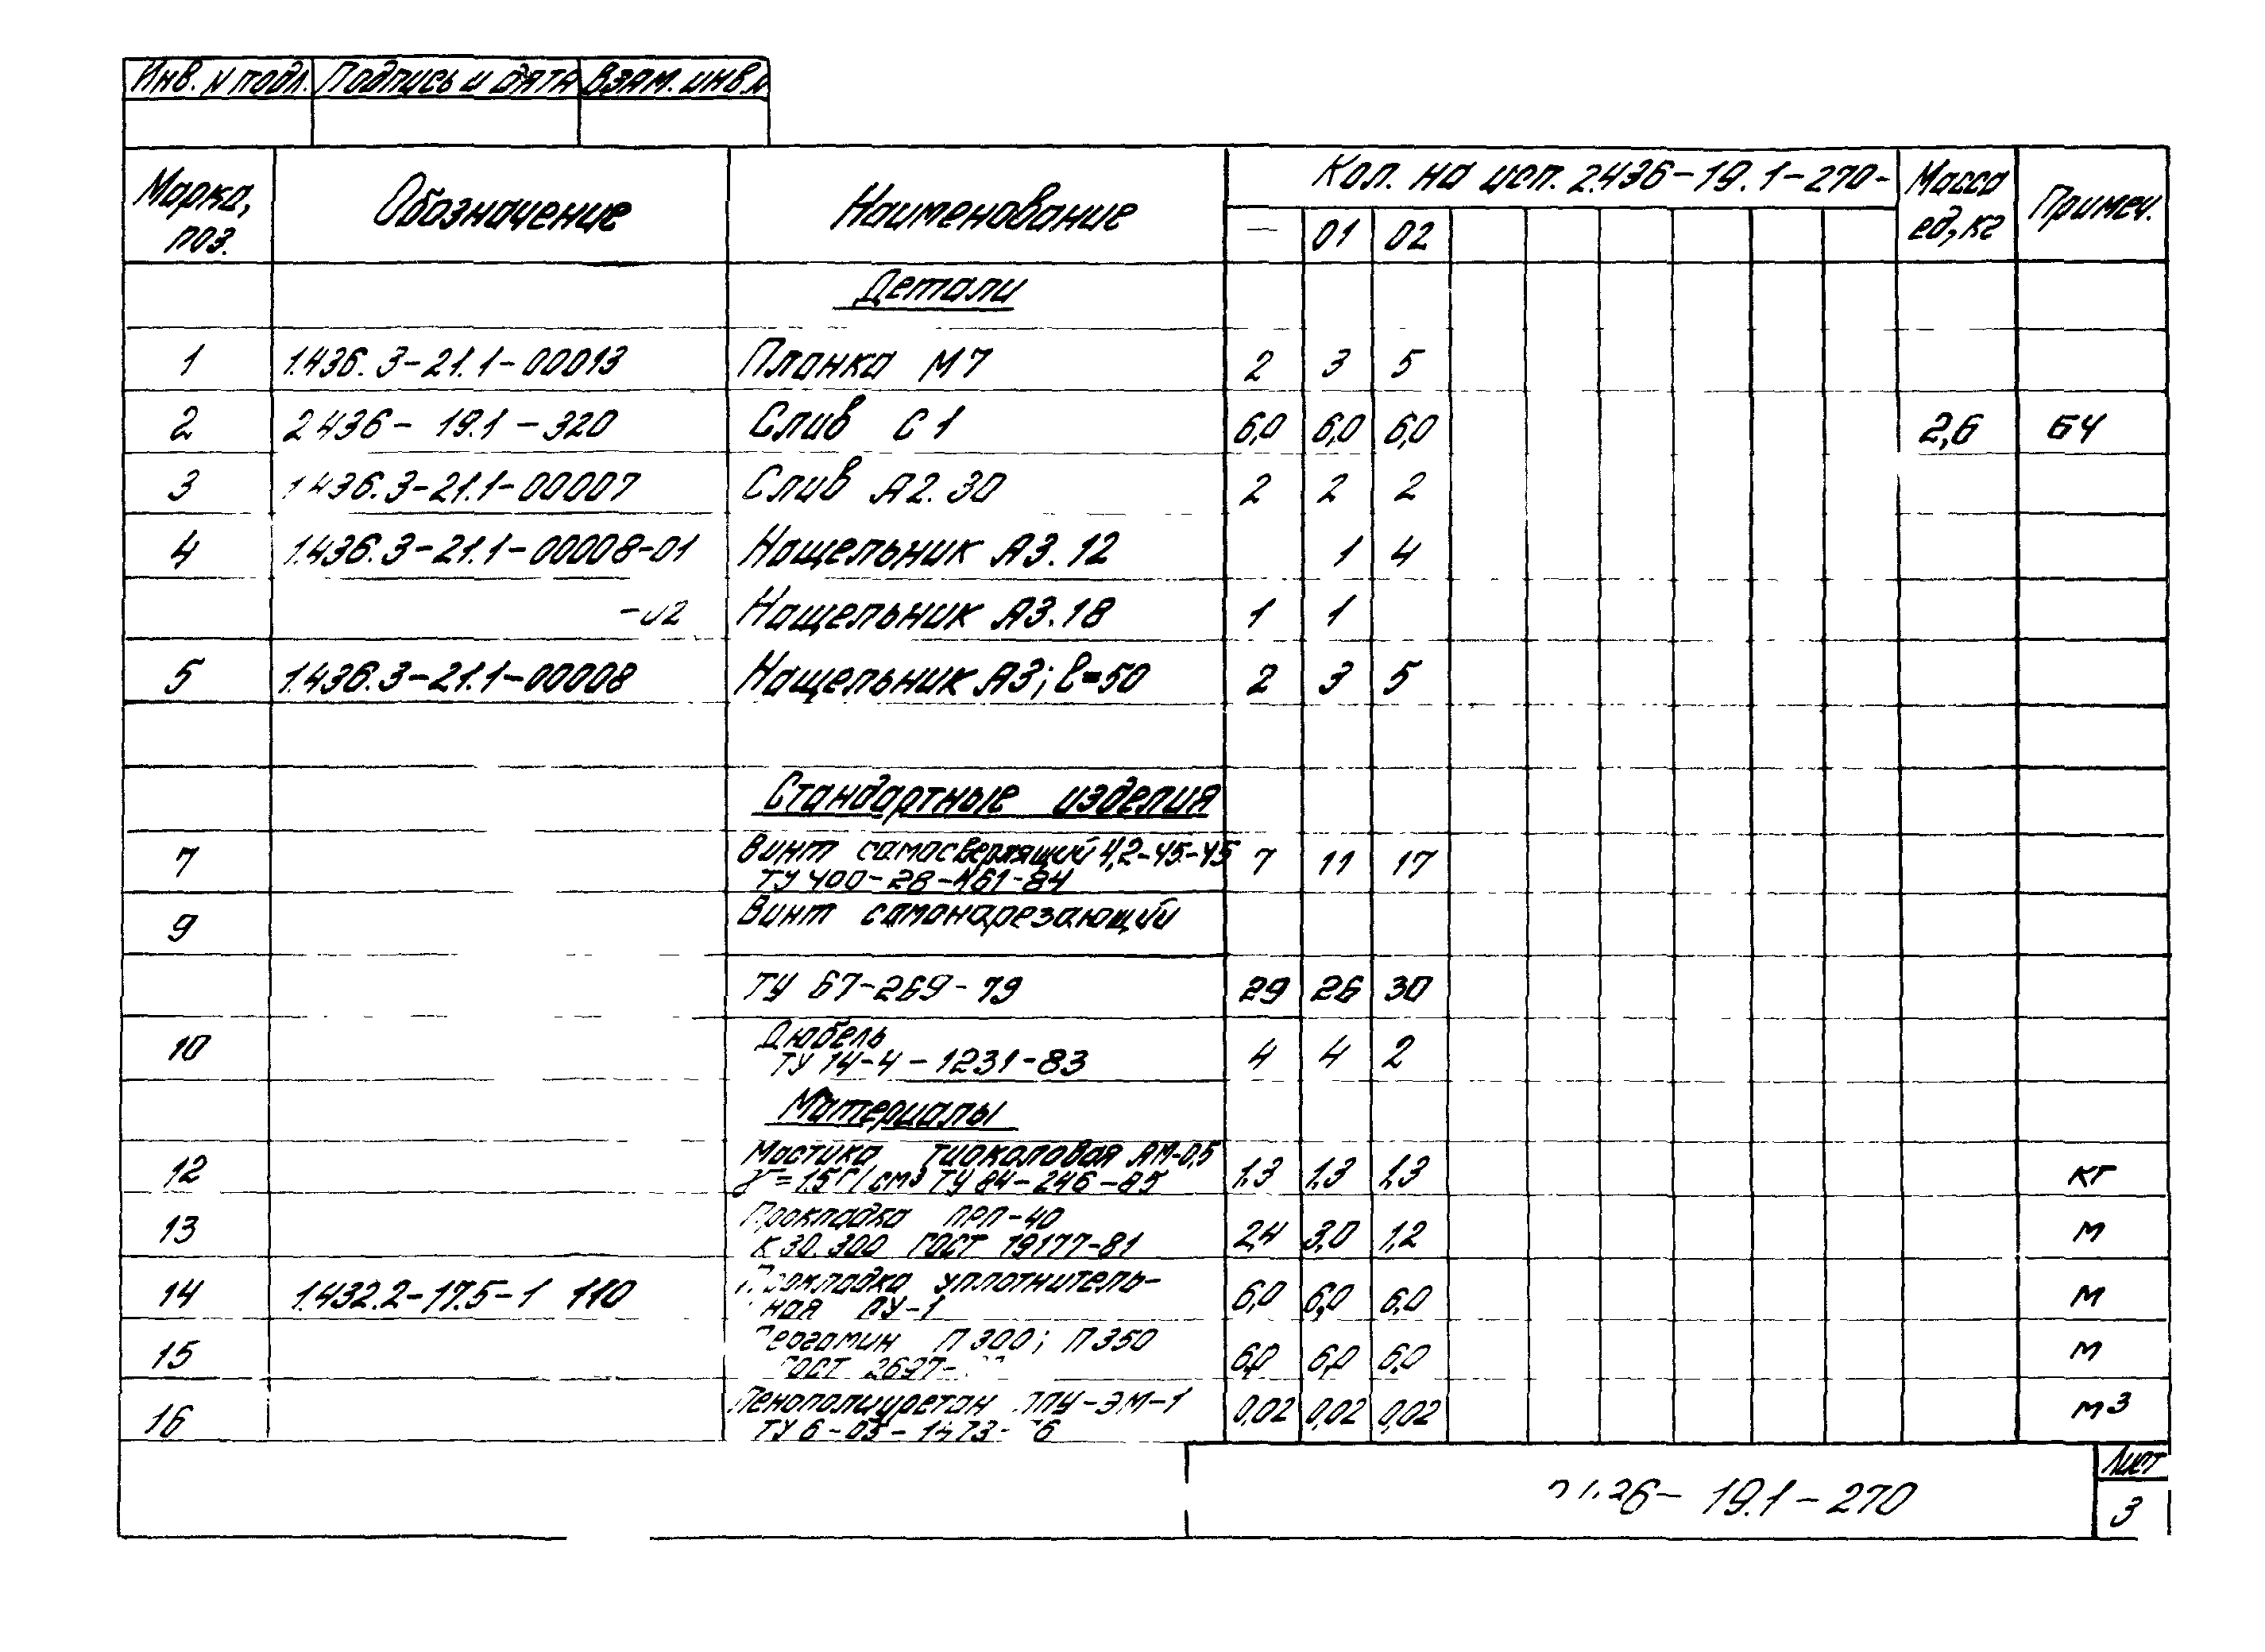 Инв. N подл. Подпись и дата Взам. инв. N
Марка, поз. Обозначение Наименование Кол. на исп. 2.436-19.1-270- Масса ед, кг Примеч.
— 01 02
Детали
1 1.436.3-21.1-00013 Планка М7 2 3 5
2 2.436-19.1-320 Слив С1 6,0 6,0 6,0 2,6 БЧ
3 1.436.3-21.1-00007 Слив А2.30 2 2 2
4 1.436.3-21.1-00008-01 Нащельник А3.12 1 4
-02 Нащельник А3.18 1 1
5 1.436.3-21.1-00008 Нащельник А3; ℓ=50 2 3 5
Стандартные изделия
7 Винт самосверлящий 4,2-45-45 7 11 17
ТУ 400-28-461-84
9 Винт самонарезающий
ТУ 67-269-79 29 26 30
10 Дюбель 4 4 2
ТУ 14-4-1231-83
Материалы
12 Мастика тиоколовая АМ-0,5 1,3 1,3 1,3 кг
γ=1.5 г/см³ ТУ 84-246-85
13 Прокладка ПРП-40 2,4 3,0 1,2 м
К30.300 ГОСТ 19177-81
14 1.432.2-17.5-1 110 Прокладка уплотнитель- 6,0 6,0 6,0 м
ная ПУ-1
15 Пергамин П300; П350 6,0 6,0 6,0 м
ГОСТ 2697-
16 Пенополиуретан ППУ-ЭМ-1 0,02 0,02 0,02 м³
ТУ 6-05-1473-76
2.436-19.1-270 Лист
3